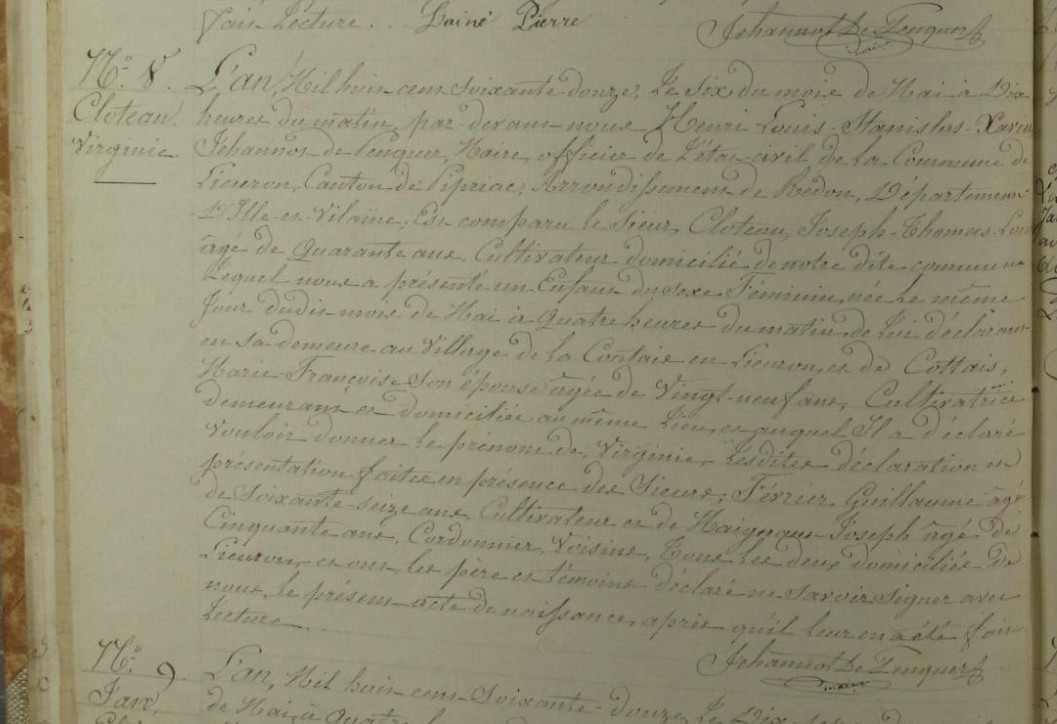 fait Lecture. Lainé Pierre
Jehannot De Penquer
maire
No. 8.
Cloteau
Virginie
L'an, Mil huit cent soixante douze, Le Six du mois de Mai à Dix
heures du matin, par devant nous Henri Louis Stanislas Xavier
Jehannot de Penquer, Maire, officier de L'état civil de La Commune de
Lieuron, Canton de Pipriac, Arrondissement de Redon, Département
D'Ille et Vilaine, Est comparu le sieur Cloteau, Joseph Thomas Louis
âgé de Quarante ans, Cultivateur domicilié de notre dite commune
Lequel nous a présenté un Enfant du sexe Féminin, née Le même
Jour dudit mois de Mai à Quatre heures du matin, de Lui déclarant
en sa demeure au Village de la Contaie en Lieuron, et de Cottais,
Marie Françoise son épouse âgée de Vingt-neuf ans, Cultivatrice
demeurant et domiciliée au même Lieu, et auquel Il a déclaré
Vouloir donner le prénom de, Virginie, Lesdites déclaration et
présentation faites en présence des Sieurs, Février Guillaume âgé
de Soixante seize ans, Cultivateur et de Joseph âgé de
Cinquante ans, Cordonnier, Voisins, Tous Les deux domiciliés de
Lieuron, et ont, les père et témoins déclaré ne savoir signer avec
nous, le présent acte de naissance, après qu'il leur en a été fait
Lecture.
Jehannot De Penquer
maire
No. 9.
L'an, Mil huit cent Soixante douze, Le Dix
de Mai, à Quatre